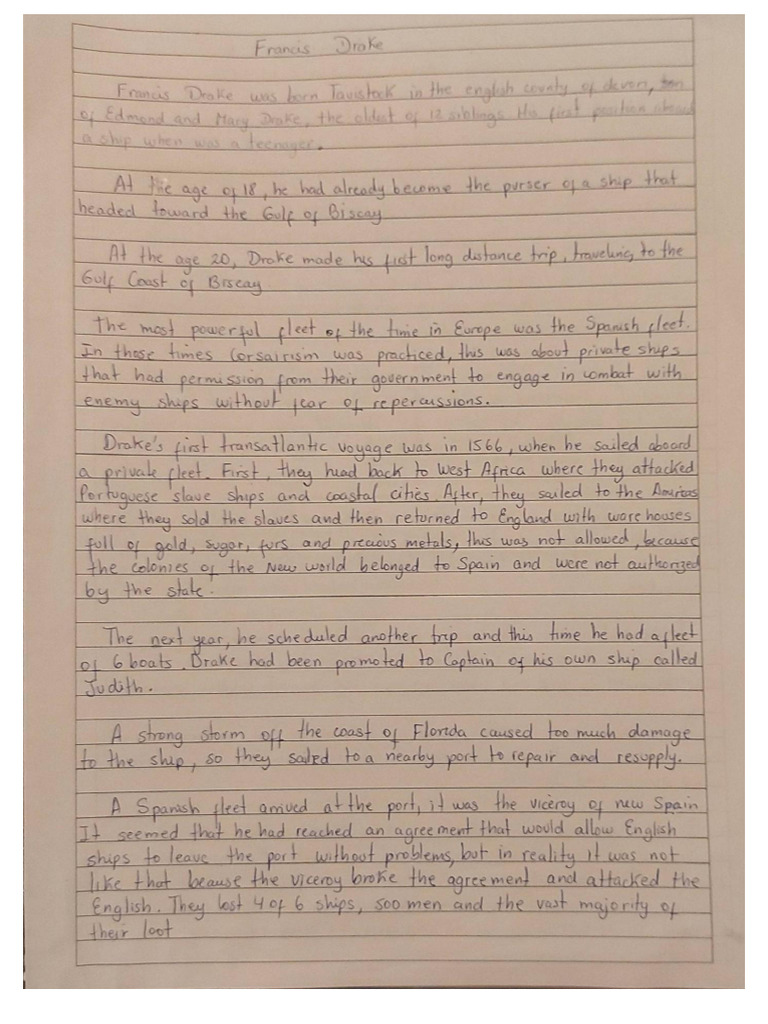 Francis Drake
Francis Drake was born Tavistock in the english county of devon, son
of Edmond and Mary Drake, the oldest of 12 siblings His first position aboard
a ship when was a teenager.
At the age of 18, he had already become the purser of a ship that
headed toward the Gulf of Biscay
At the age 20, Drake made his first long distance trip, traveling to the
Gulf Coast of Biscay
The most powerful fleet of the time in Europe was the Spanish fleet.
In those times Corsairism was practiced, this was about private ships
that had permission from their government to engage in combat with
enemy ships without fear of repercussions.
Drake's first transatlantic voyage was in 1566, when he sailed aboard
a private fleet. First, they head back to West Africa where they attacked
Portuguese slave ships and coastal cities. After, they sailed to the
where they sold the slaves and then returned to England with ware houses
full of gold, sugar, furs and precious metals, this was not allowed, because
the colonies of the New world belonged to Spain and were not authorized
by the state.
The next year, he scheduled another trip and this time he had a fleet
of 6 boats. Drake had been promoted to Captain of his own ship called
Judith.
A strong storm off the coast of Florida caused too much damage
to the ship, so they sailed to a nearby port to repair and resupply.
A Spanish fleet arrived at the port, it was the viceroy of new Spain
It seemed that he had reached an agreement that would allow English
ships to leave the port without problems, but in reality it was not
like that because the viceroy broke the agreement and attacked the
English. They lost 4 of 6 ships, 500 men and the vast majority of
their loot